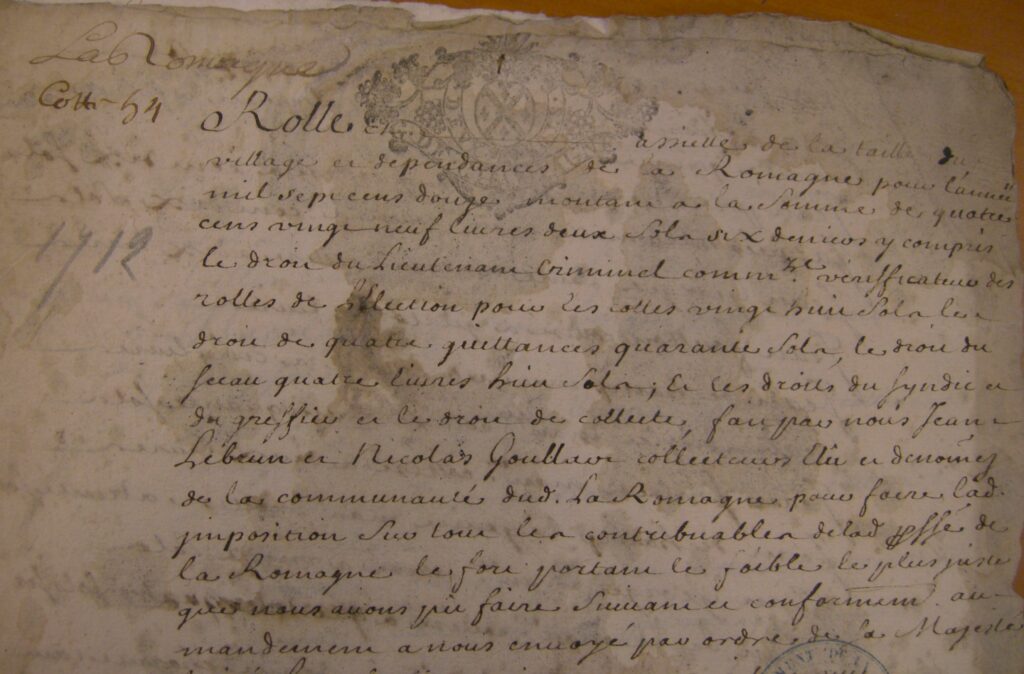 La Romagne
Cotte 54
1712
Rolle et assiette de la taille du
village et dependances de la Romagne pour l'année
mil sept cens douze montant a la somme de quatre
cens vingt neuf livres deux sols six deniers y compris
le droit du Lieutenant Criminel commre. vérifficateur des
rolles de l'Election pour les cottes vingt huit sols les
droit de quatre quittances quarante sols, le droit du
sceau quatre livres huit sols; et les droits du syndic et
du greffier et le droit de collecte, fait par nous Jean
Lebrun et Nicolas Goullart collecteurs Elû et denoméz
de la communauté dud. La Romagne pour faire lad.
imposition sur tous les contribuables de lad de
la Romagne le fort portant le foible le plus juste
que nous avons pû faire suivant et conformemt. au
mandement a nous envoyé par ordre de sa Majesté